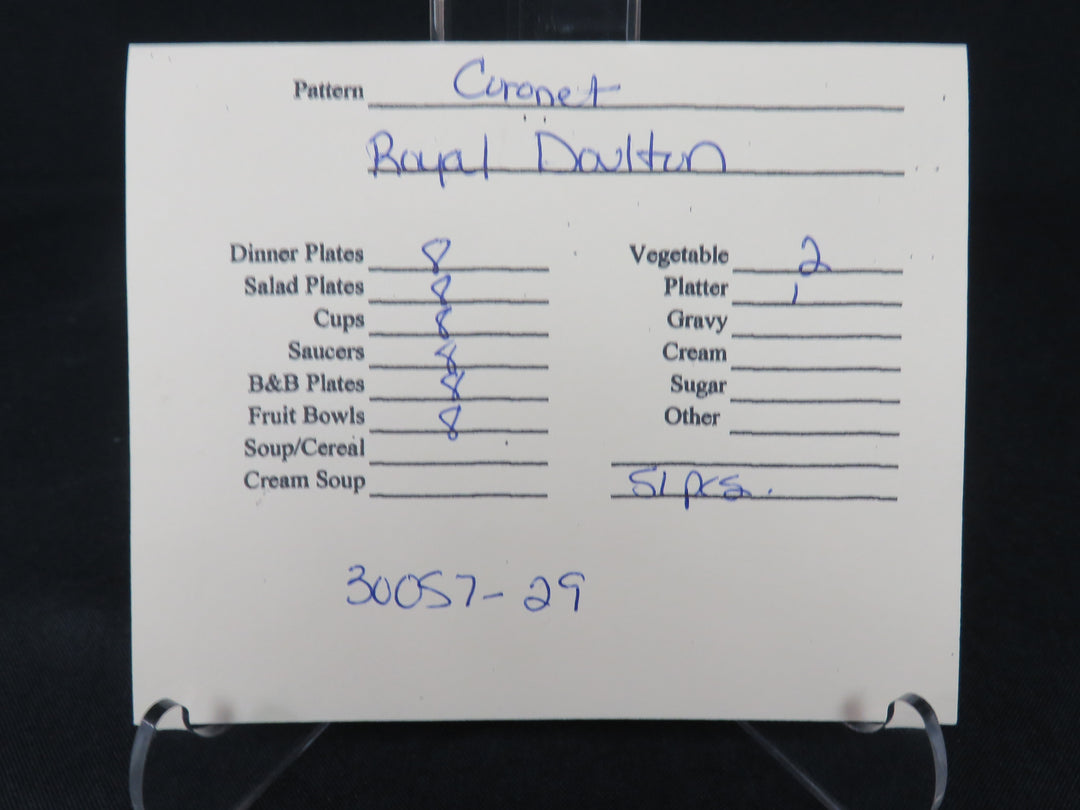 Pattern Coronet
Royal Doulton
Dinner Plates 8
Salad Plates 8
Cups 8
Saucers 8
B&B Plates 8
Fruit Bowls 8
Soup/Cereal
Cream Soup
Vegetable 2
Platter 1
Gravy
Cream
Sugar
Other
51 pcs.
30057-29